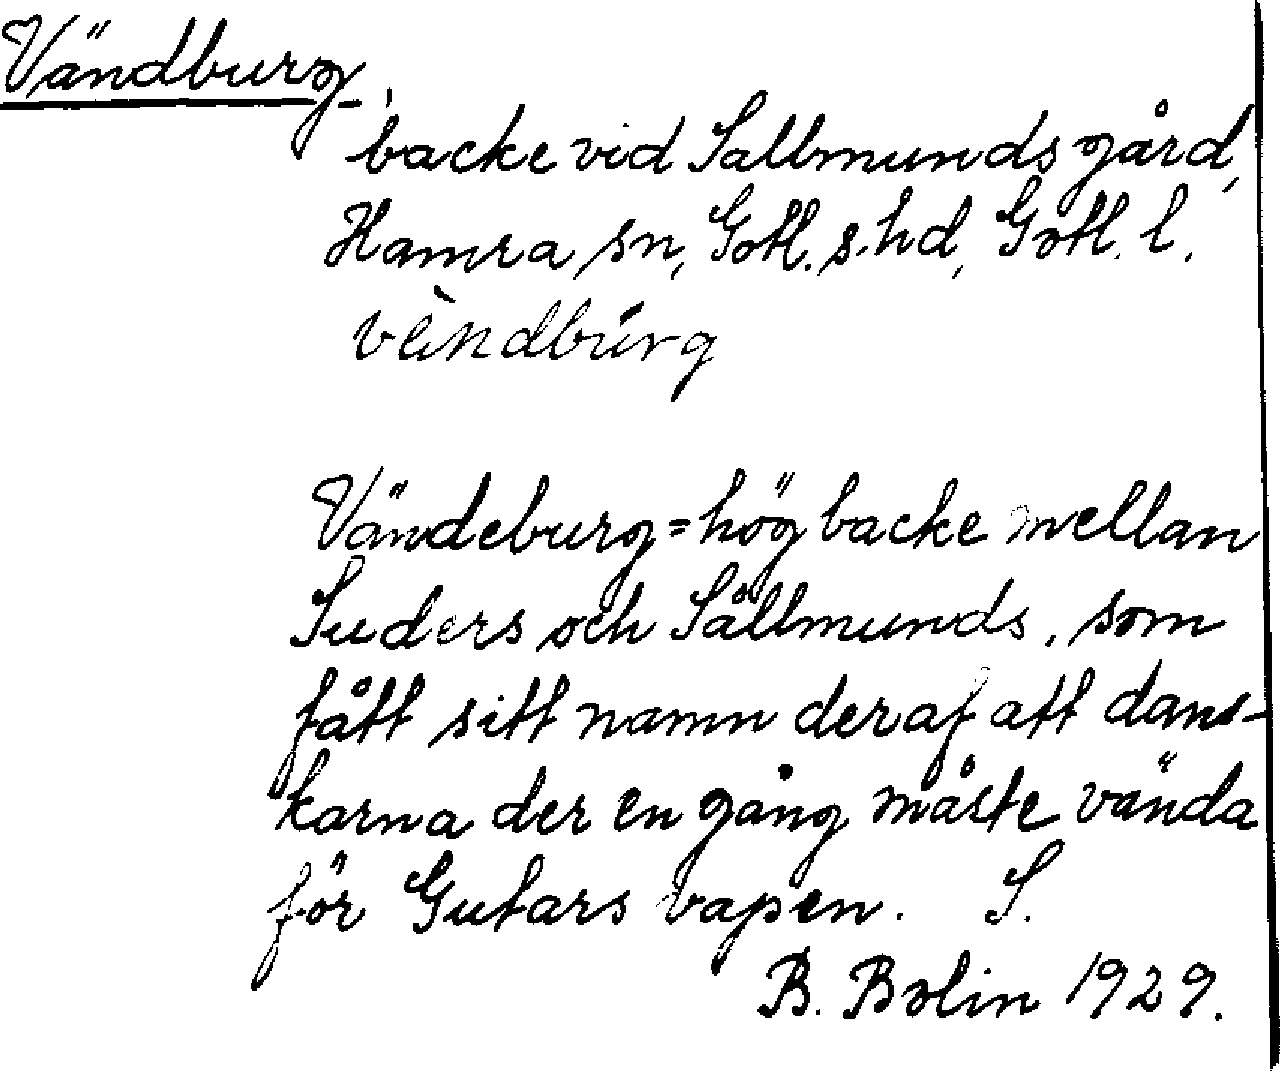 Vändburg,
backe vid Sallmunds gård,
Hamra sn, Gotl. s. hd, Gotl. l.
vä̀ndbúrg
Vändeburg = hög backe mellan
Suders och Sållmunds, som
fått sitt namn deraf att dans-
karna der en gång måste vända
för Gutars vapen. S.
B. Bolin 1929.